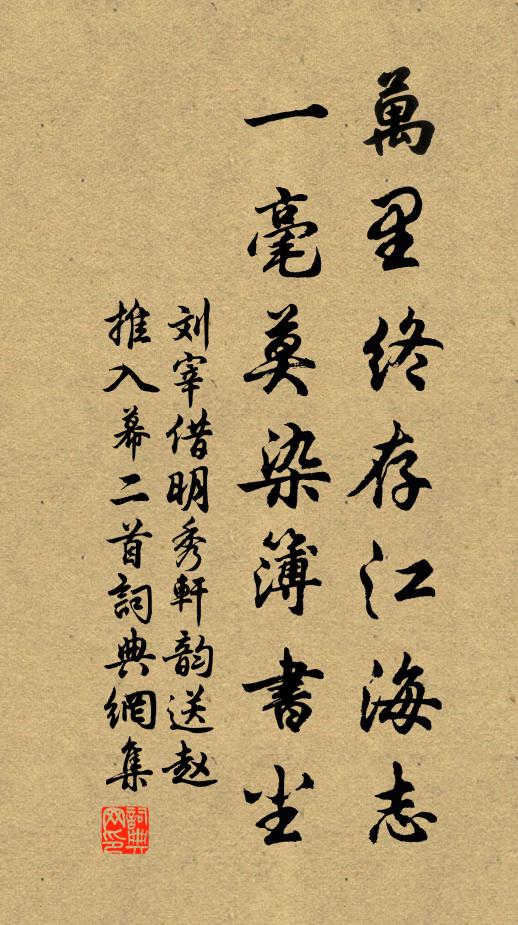 萬里終存江海志
一毫莫染簿書尘
刘宰借明秀軒韵送赵
推入幕二首詞典網集
詞典网印